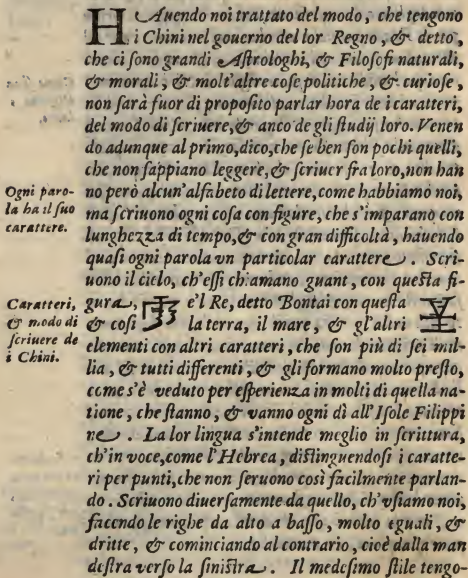 HAuendo noi trattato del modo, che tengono
i Chini nel gouerno del lor Regno, & detto,
che ci ſono grandi Aſtrologhi, & Filoſofi naturali,
& morali, & molt'altre coſe politiche, & curioſe,
non ſarà fuor di propoſito parlar hora de i caratteri,
del modo di ſcriuere, & anco de gli ſtudij loro. Venen
do adunque al primo, dico, che ſe ben ſon pochi quelli,
che non ſappiano leggere, & ſcriuer fra loro, non han
Ogni paro-
la ha il ſuo
carattere.
no però alcun'alfabeto di lettere, come habbiamo noi,
ma ſcriuono ogni coſa con figure, che s'imparano con
lunghezza di tempo, & con gran difficoltà, hauendo
quaſi ogni parola vn particolar carattere. Scri-
uono il cielo, ch'eſſi chiamano guant, con queſta fi-
Caratteri,
& modo di
ſcriuere de
i Chini.
gura, e'l Re, detto Bontai con queſta
& coſi la terra, il mare, & gl'altri
elementi con altri caratteri, che ſon più di ſei mil-
lia, & tutti differenti, & gli formano molto preſto,
come s'è veduto per eſperienza in molti di quella na-
tione, che ſtanno, & vanno ogni dì all'Iſole Filippi
ne. La lor lingua s'intende meglio in ſcrittura,
ch'in voce, come l'Hebrea, diſtinguendoſi i caratte-
ri per punti, che non ſeruono coſì facilmente parlan-
do. Scriuono diuerſamente da quello, ch'vſiamo noi,
facendo le righe da alto a baſſo, molto eguali, &
dritte, & cominciando al contrario, cioè dalla man
deſtra verſo la ſiniſtra. Il medeſimo ſtile tengo-